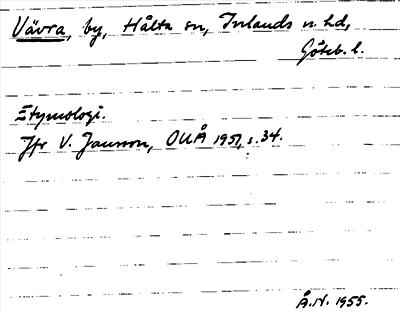 Vävra, by, Hålta sn, Inlands n. hd,
Göteb. l.
Etymologi.
Jfr V. Jansson, OUÅ 1951, s. 34.
Å.N. 1955.